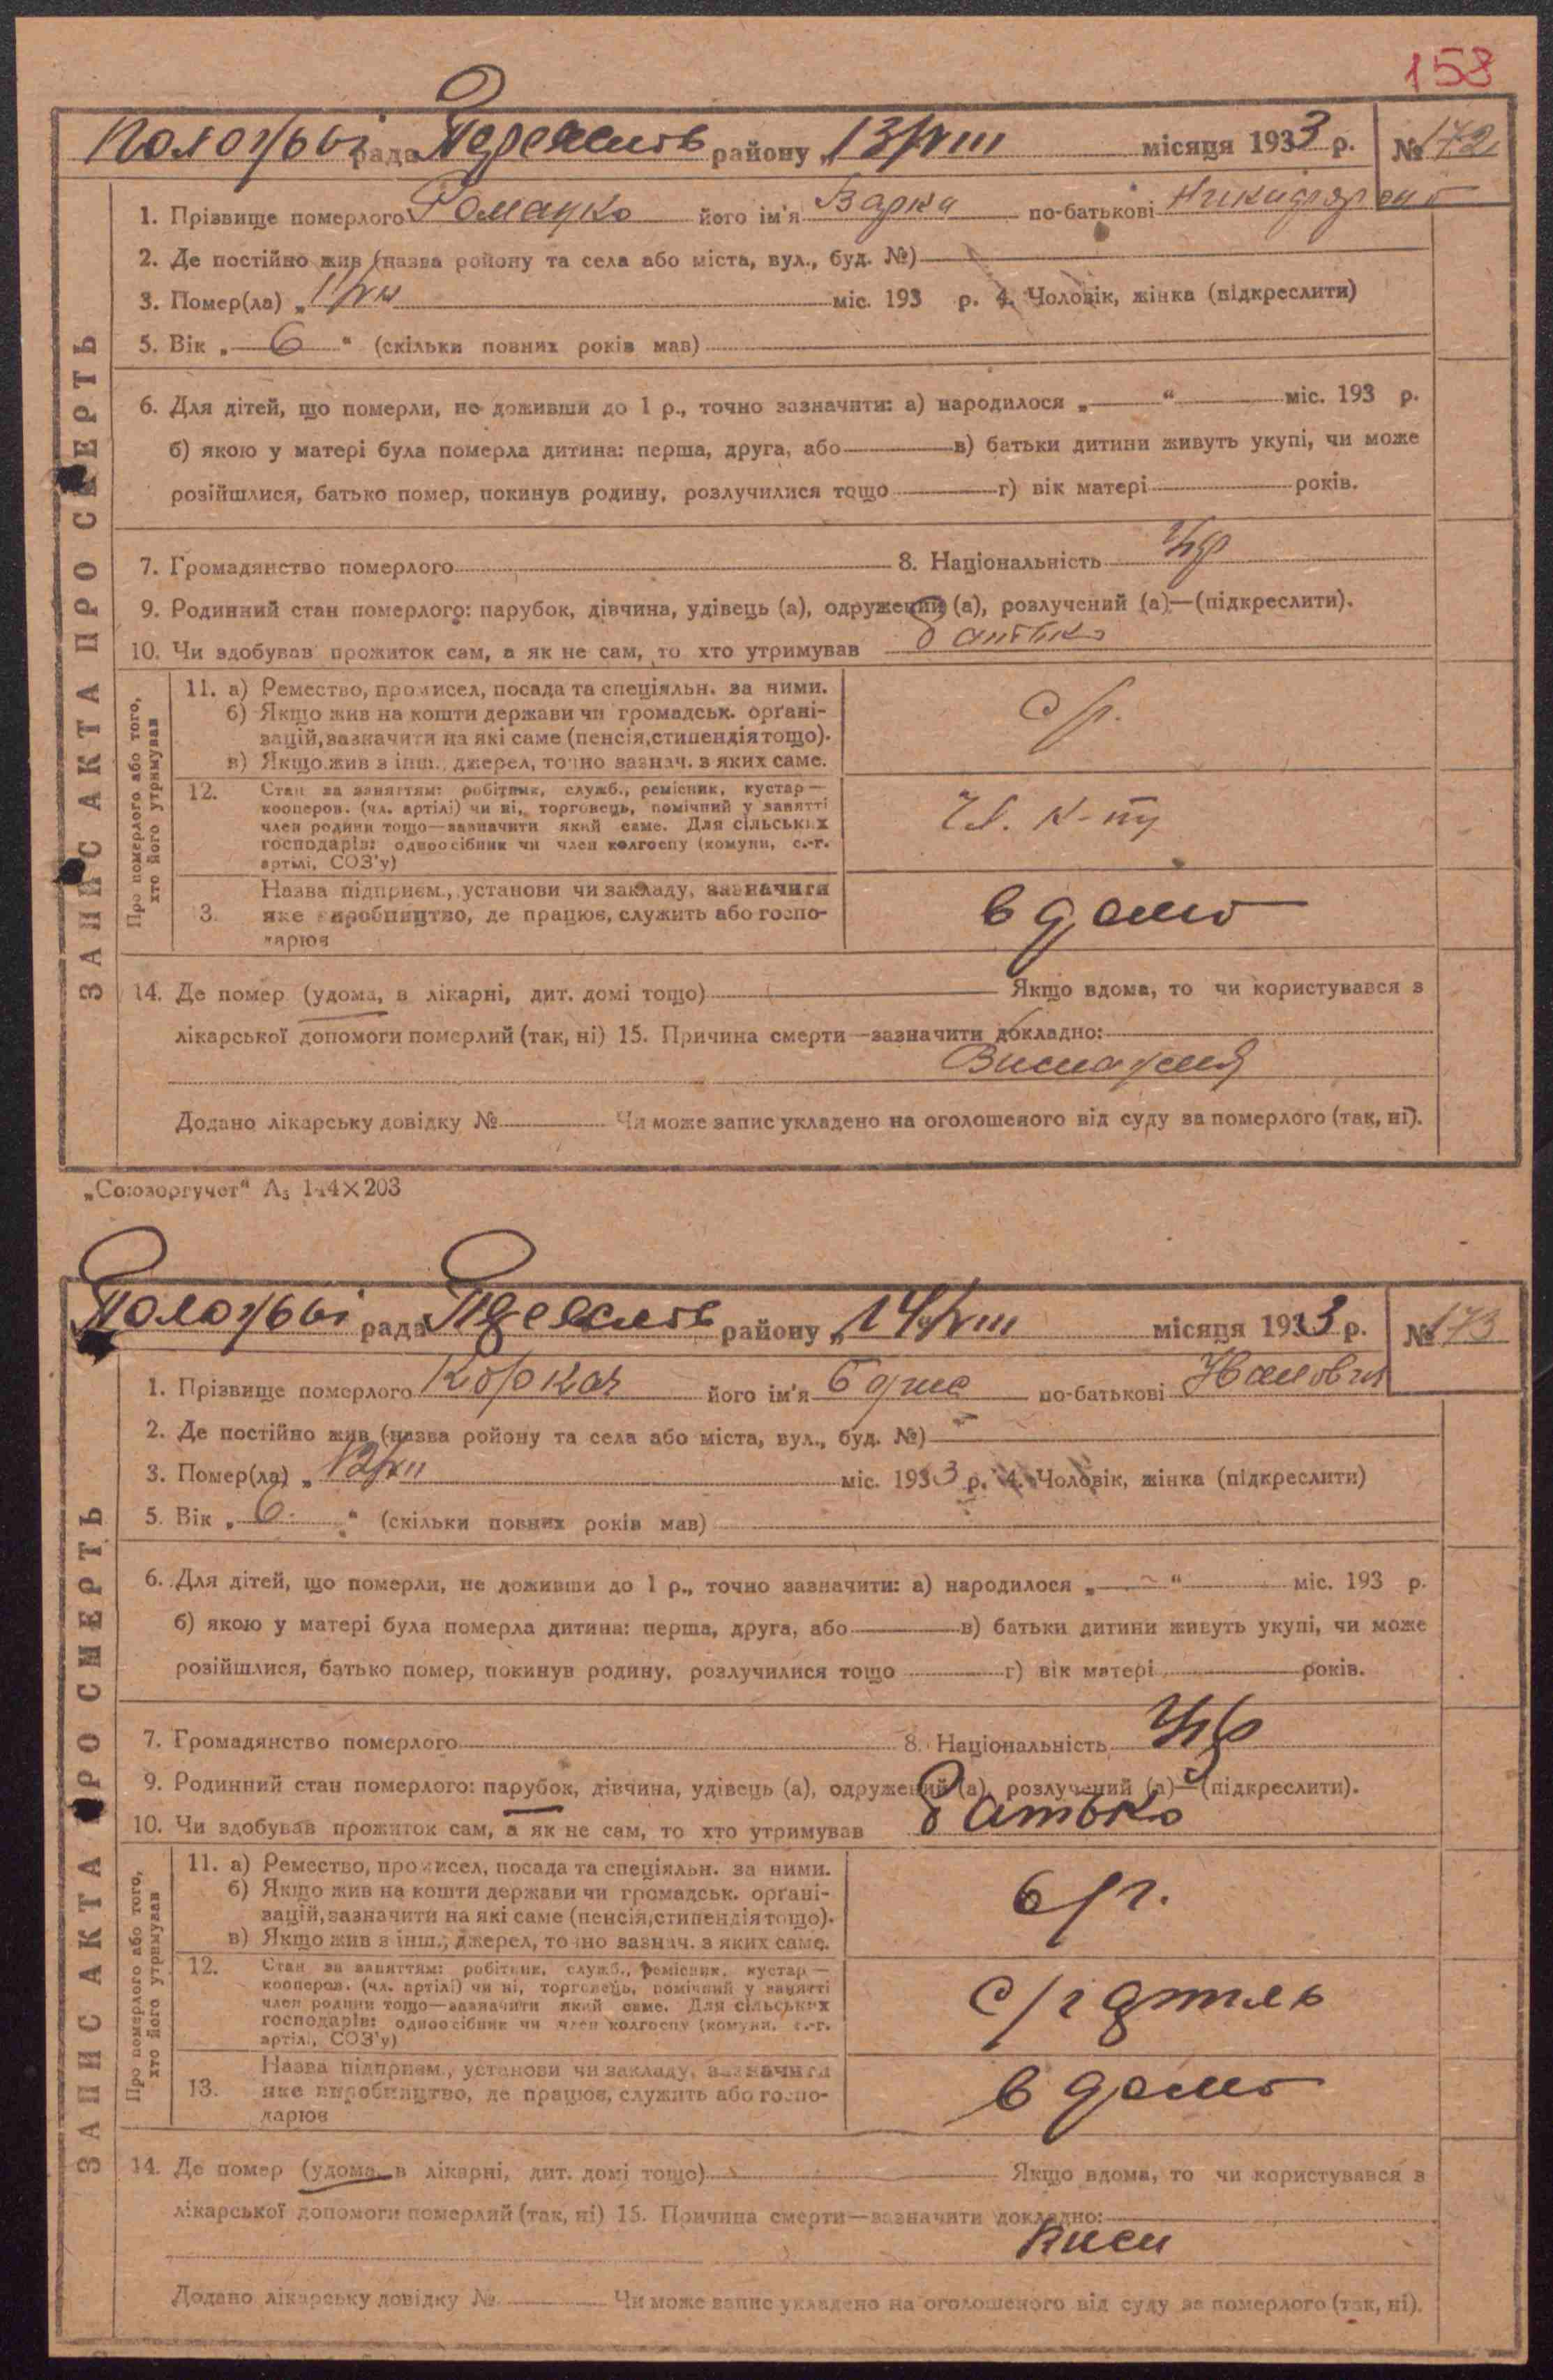 158
рада Переяслів району „13/VIII місяця 1933 р. № 172
1. Прізвище померлого Романко його ім'я Варка по-батькові
2. Де постійно жив (назва ройону та села або міста, вул., буд. №)
3. Помер(ла) „ міс. 193 р. 4. Чоловік, жінка (підкреслити)
5. Вік „ 6 “ (скільки повних років мав)
6. Для дітей, що померли, не доживши до 1 р., точно зазначити: а) народилося „ “ міс. 193 р.
б) якою у матері була померла дитина: перша, друга, або в) батьки дитини живуть укупі, чи може
розійшлися, батько помер, покинув родину, розлучилися тощо г) вік матері років.
7. Громадянство померлого 8. Національність Укр
9. Родинний стан померлого: парубок, дівчина, удівець (а), одружений (а), розлучений (а)—(підкреслити).
10. Чи здобував прожиток сам, а як не сам, то хто утримував батько
ЗАПИС АКТА ПРО СМЕРТЬ
Про померлого або того, хто його утримував
11. а) Ремество, промисел, посада та спеціяльн. за ними.
б) Якщо жив на кошти держави чи громадськ. орґані-
зацій, зазначити на які саме (пенсія, стипендія тощо).
в) Якщо жив з інш., джерел, точно зазнач. з яких саме.
с/г.
12. Стан за заняттям: робітник, служб., ремісник, кустар—
кооперов. (чл. артілі) чи ні, торговець, помічний у занятті
член родини тощо—зазначити який саме. Для сільських
господарів: одноосібник чи член колгоспу (комуни, с.-г.
артілі, СОЗ'у)
Чл. к-пу
3. Назва підприєм., установи чи закладу, зазначити
яке виробництво, де працює, служить або госпо-
дарює
в дома
14. Де помер (удома, в лікарні, дит. домі тощо) Якщо вдома, то чи користувався з
лікарської допомоги померлий (так, ні) 15. Причина смерти—зазначити докладно:
Додано лікарську довідку № Чи може запис укладено на оголошеного від суду за померлого (так, ні).
„Союзоргучет“ А5 144×203
рада Переяслів району „14/VIII місяця 1933 р. № 173
1. Прізвище померлого Коркач його ім'я по-батькові
2. Де постійно жив (назва ройону та села або міста, вул., буд. №)
3. Помер(ла) „ міс. 1933 р. 4. Чоловік, жінка (підкреслити)
5. Вік „ 6. “ (скільки повних років мав)
6. Для дітей, що померли, не доживши до 1 р., точно зазначити: а) народилося „ “ міс. 193 р.
б) якою у матері була померла дитина: перша, друга, або в) батьки дитини живуть укупі, чи може
розійшлися, батько помер, покинув родину, розлучилися тощо г) вік матері років.
7. Громадянство померлого 8. Національність Укр
9. Родинний стан померлого: парубок, дівчина, удівець (а), одружений (а), розлучений (а)—(підкреслити).
10. Чи здобував прожиток сам, а як не сам, то хто утримував батько
ЗАПИС АКТА ПРО СМЕРТЬ
Про померлого або того, хто його утримував
11. а) Ремество, промисел, посада та спеціяльн. за ними.
б) Якщо жив на кошти держави чи громадськ. орґані-
зацій, зазначити на які саме (пенсія, стипендія тощо).
в) Якщо жив з інш., джерел, точно зазнач. з яких саме.
12. Стан за заняттям: робітник, служб., ремісник, кустар—
кооперов. (чл. артілі) чи ні, торговець, помічний у занятті
член родини тощо—зазначити який саме. Для сільських
господарів: одноосібник чи член колгоспу (комуни, с.-г.
артілі, СОЗ'у)
с/г артиль
13. Назва підприєм., установи чи закладу, зазначити
яке виробництво, де працює, служить або госпо-
дарює
в дома
14. Де помер (удома, в лікарні, дит. домі тощо) Якщо вдома, то чи користувався з
лікарської допомоги померлий (так, ні) 15. Причина смерти—зазначити докладно:
Додано лікарську довідку № Чи може запис укладено на оголошеного від суду за померлого (так, ні).